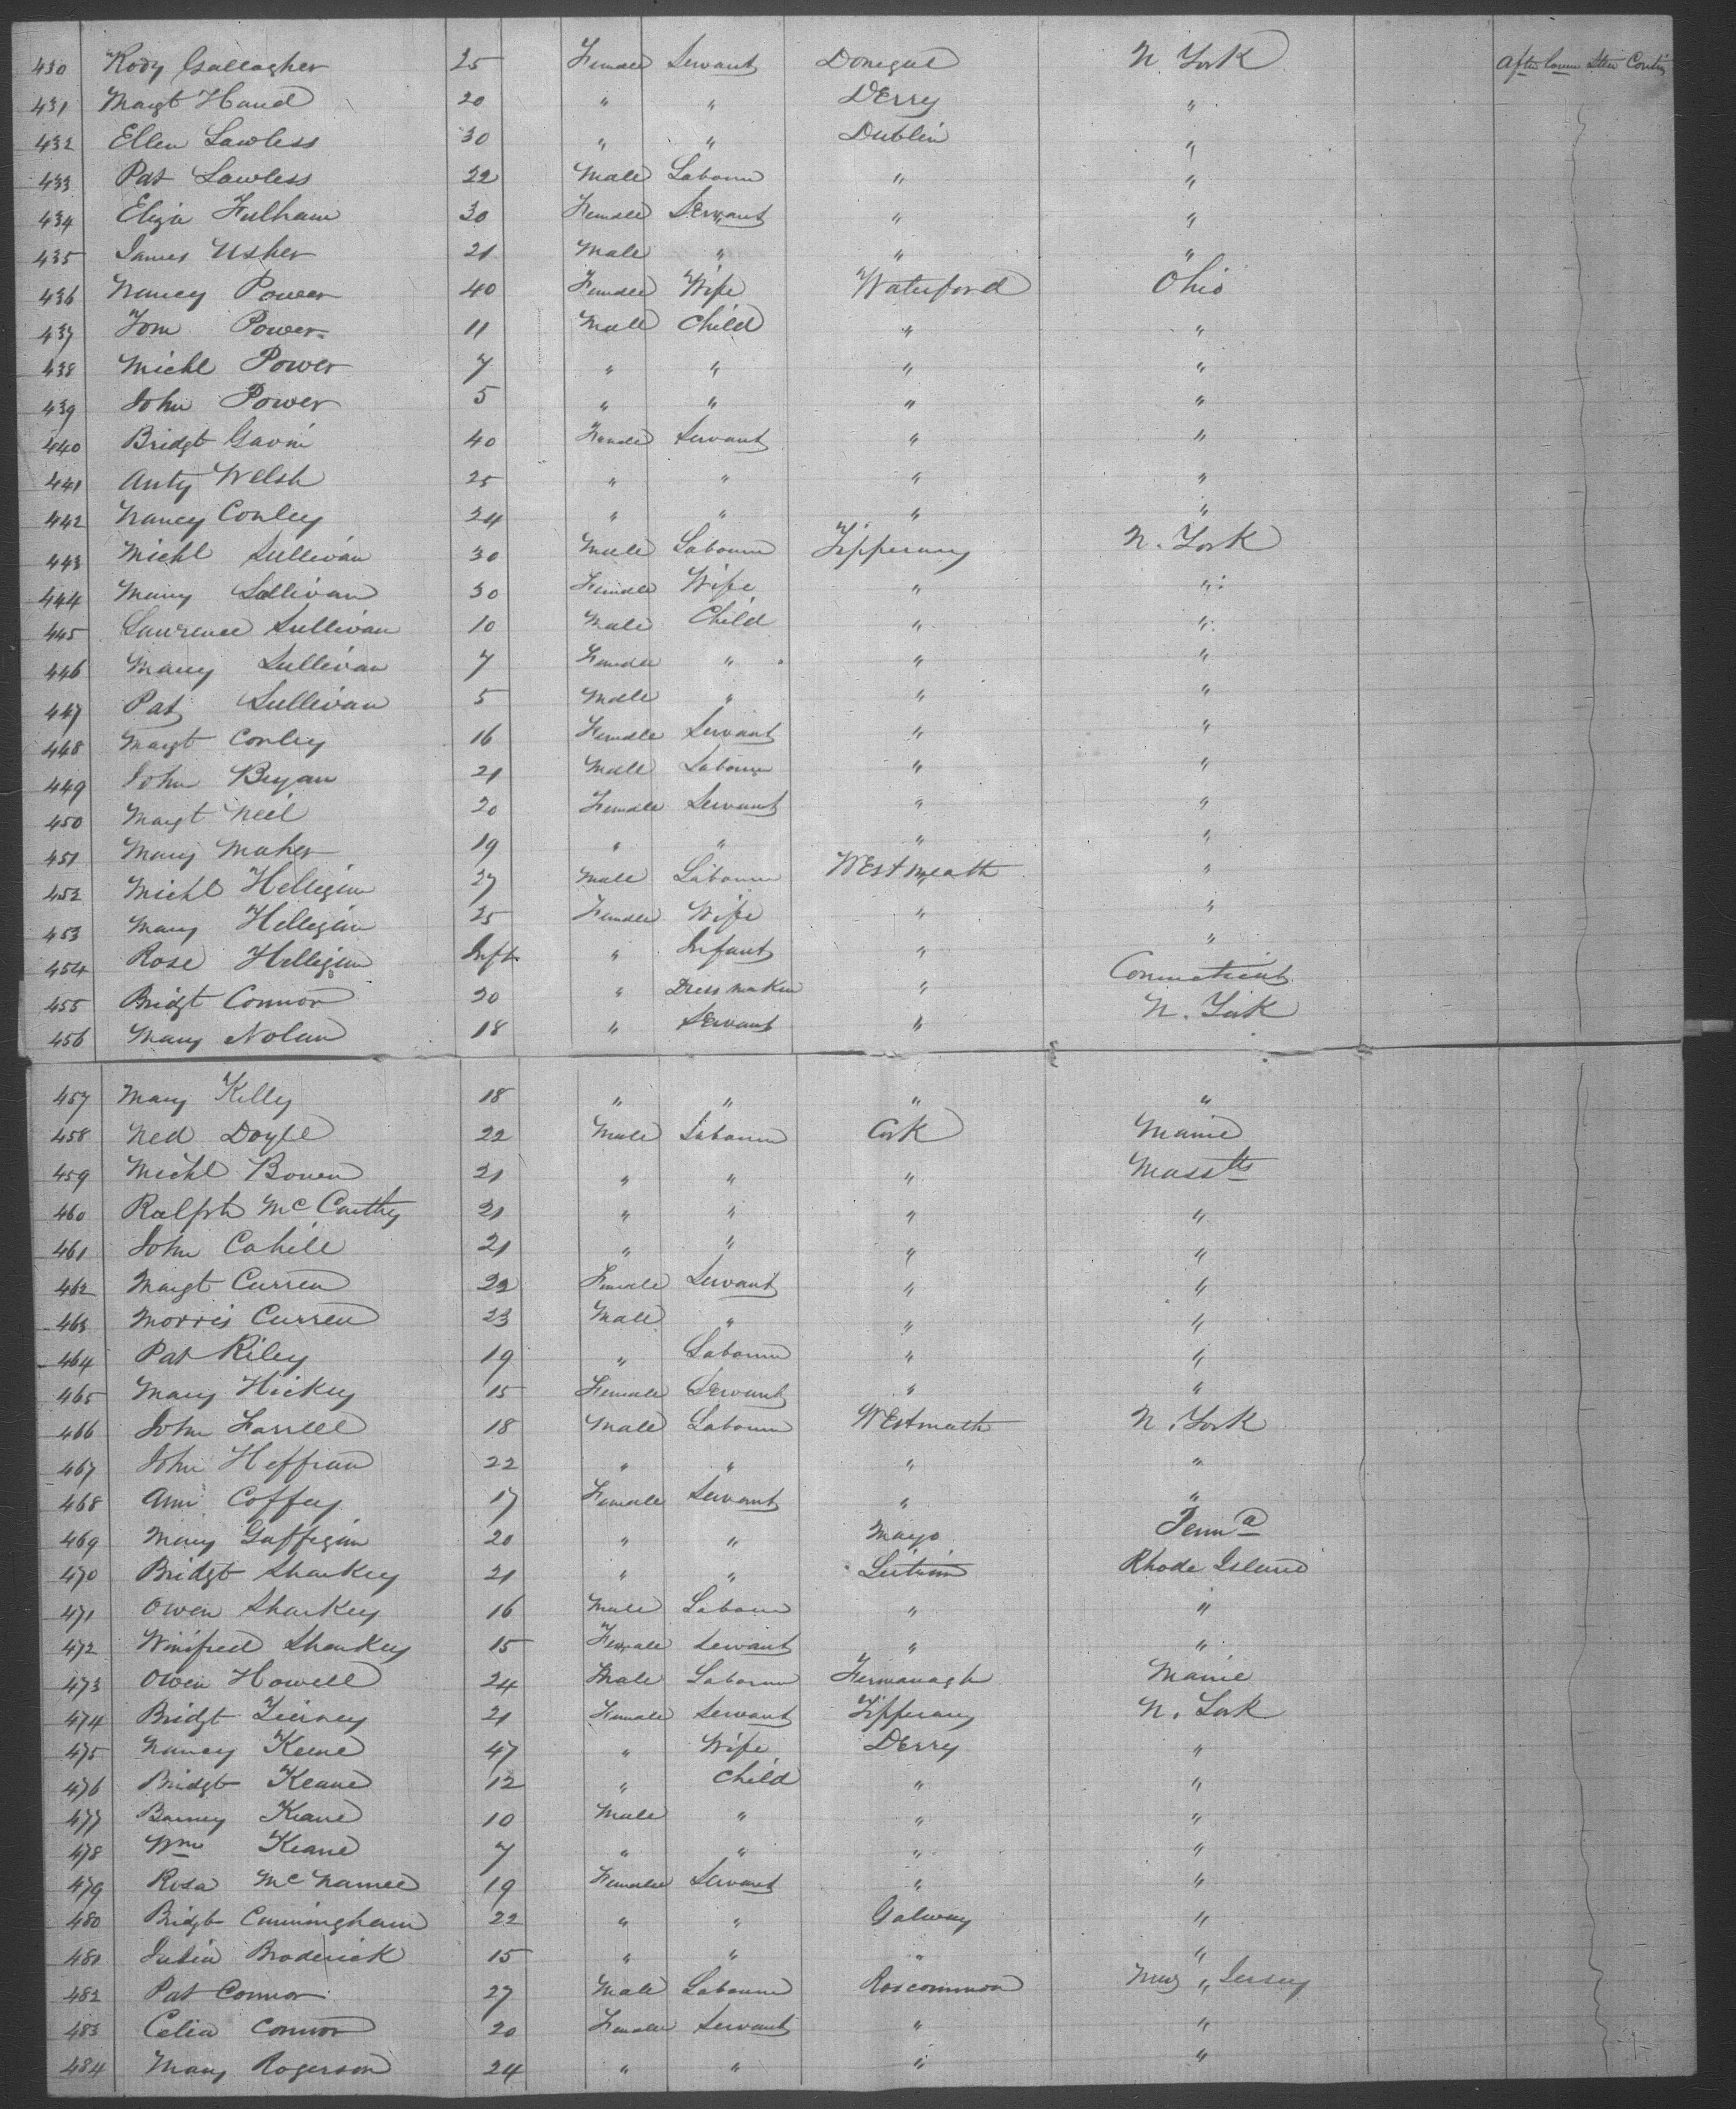 430 Rody Gallagher 25 Female Servant Donegal N. York After Comm Stew Contin
431 Margt Hand 20 " " Derry "
432 Ellen Lawless 30 " " Dublin "
433 Pat Lawless 22 Male Labourer " "
434 Eliza Fulham 30 Female Servant " "
435 James Usher 21 Male " " "
436 Nancy Power 40 Female Wife Waterford Ohio
437 Tom Power 11 Male Child " "
438 Michl Power 7 " " " "
439 John Power 5 " " " "
440 Bridgt Gavin 40 Female Servant " "
441 Anty Welsh 25 " " " "
442 Nancy Conley 24 " " " "
443 Michl Sullivan 30 Male Labourer Tipperary N. York
444 Mary Sullivan 30 Female Wife " "
445 Laurence Sullivan 10 Male Child " "
446 Mary Sullivan 7 Female " " "
447 Pat Sullivan 5 Male " " "
448 Margt Conley 16 Female Servant " "
449 John Bryan 21 Male Labourer " "
450 Margt Neil 20 Female Servant " "
451 Mary Maher 19 " " " "
452 Michl Helligan 27 Male Labourer Westmeath "
453 Mary Helligan 25 Female Wife " "
454 Rose Helligan Inft " Infant " "
455 Bridgt Connor 20 " Dress maker " Connecticut
456 Mary Nolan 18 " Servant " N. York
457 Mary Kelly 18 " " " "
458 Ned Doyle 22 Male Labourer Cork Maine
459 Michl Bowen 21 " " " Masstts
460 Ralph McCarthy 21 " " " "
461 John Cahill 21 " " " "
462 Margt Curren 22 Female Servant " "
463 Morris Curren 23 Male " " "
464 Pat Riley 19 " Labourer " "
465 Mary Hickey 15 Female Servant " "
466 John Farrell 18 Male Labourer Westmeath N. York
467 John Heffran 22 " " " "
468 Ann Coffey 17 Female Servant " "
469 Mary Gaffigan 20 " " Mayo Penna
470 Bridgt Sharkey 21 " " Leitrim Rhode Island
471 Owen Sharkey 16 Male Labourer " "
472 Winifred Sharkey 15 Female Servant " "
473 Owen Howell 24 Male Labourer Fermanagh Maine
474 Bridgt Tierney 21 Female Servant Tipperary N. York
475 Nancy Keane 47 " Wife Derry "
476 Bridgt Keane 12 " Child " "
477 Barney Keane 10 Male " " "
478 Wm Keane 7 " " " "
479 Rosa McNamee 19 Female Servant " "
480 Bridgt Cunningham 22 " " Galway "
481 Julia Broderick 15 " " " "
482 Pat Connor 27 Male Labourer Roscommon New " Jersey
483 Celia Connor 20 Female Servant " "
484 Mary Rogerson 24 " " " "